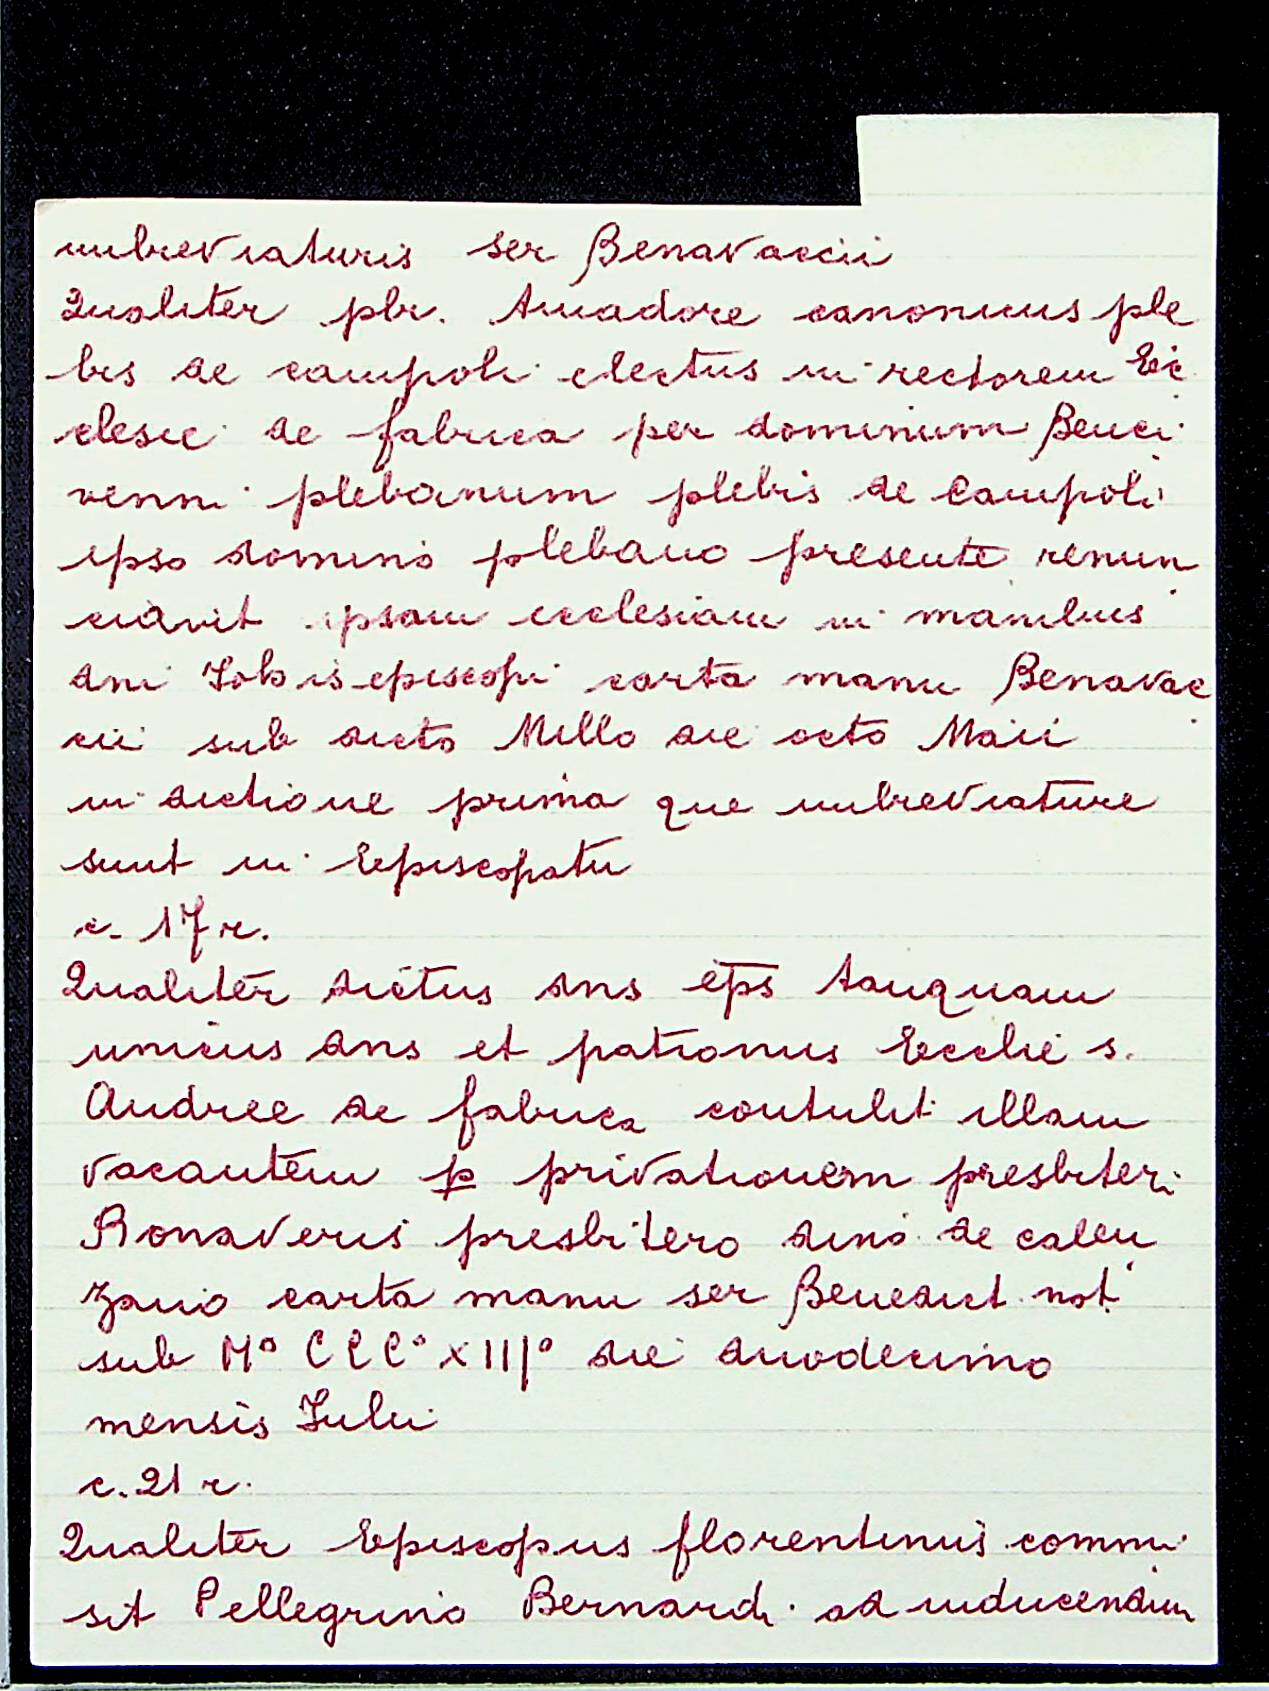 imbreviaturis ser Benavaccii
Qualiter pbr. Amadore canonicus ple
bis de campoli electus in rectorem Ec
clesie de fabrica per dominum Benci
venni plebanum plebis de Campoli
ipso domino plebano presente renun
ciavit ipsam ecclesiam in manibus
dni episcopi carta manu Benavac
cii sub dicto Millo die octo Maii
in dictione prima que imbreviature
sunt in Episcopatu
c. 17 r.
Qualiter dictus dns eps tanquam
unicus dns et patronus Ecclie s.
Andree de fabrica contulit illam
vacantem p privationem presbiteri
Bonaveris presbitero dino de calen
zano carta manu ser Benedict not
sub M° CCC° XIII° die duodecimo
mensis Iulii
c. 21 r.
Qualiter Episcopus florentinus commi
sit Pellegrino Bernardi ad inducendum